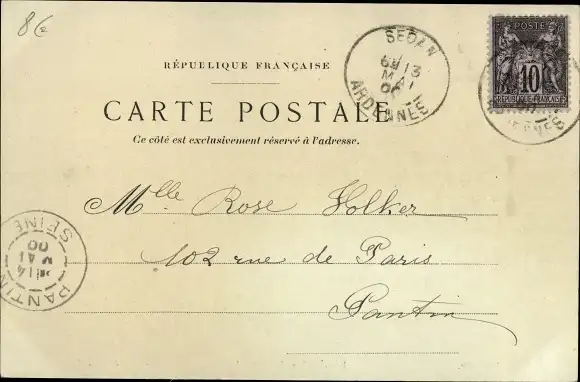 8€
SEDAN
13
MAI
00
ARDENNES
POSTE
10
REPUBLIQUE FRANÇAISE
RÉPUBLIQUE FRANÇAISE
CARTE POSTALE
Ce côté est exclusivement réservé à l'adresse.
Mlle Rose Holker
102 rue de Paris
Pantin
PANTIN
14
MAI
00
SEINE